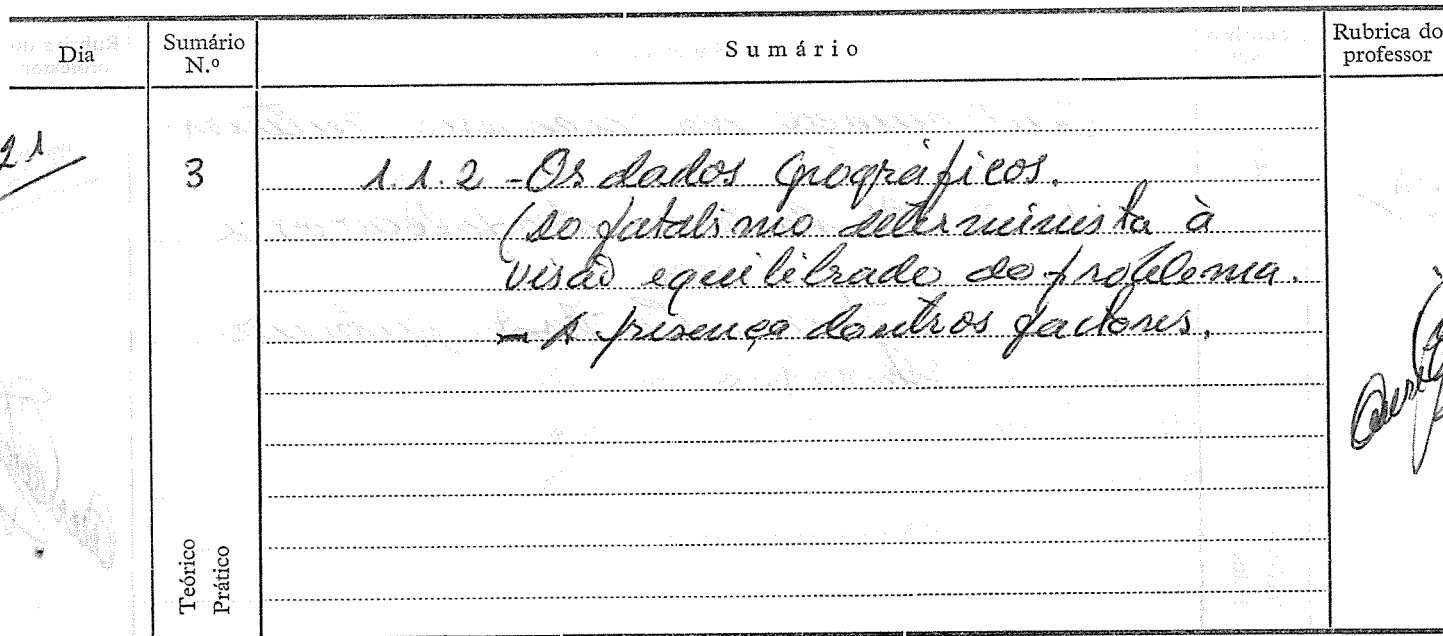 Dia
Sumário N.º
Sumário
Rubrica do professor
21
3
1.1.2 - Os dados geográficos.
(do fatalismo determinista à
visão equilibrada do problema.
- A presença doutros factores.
Teórico
Prático